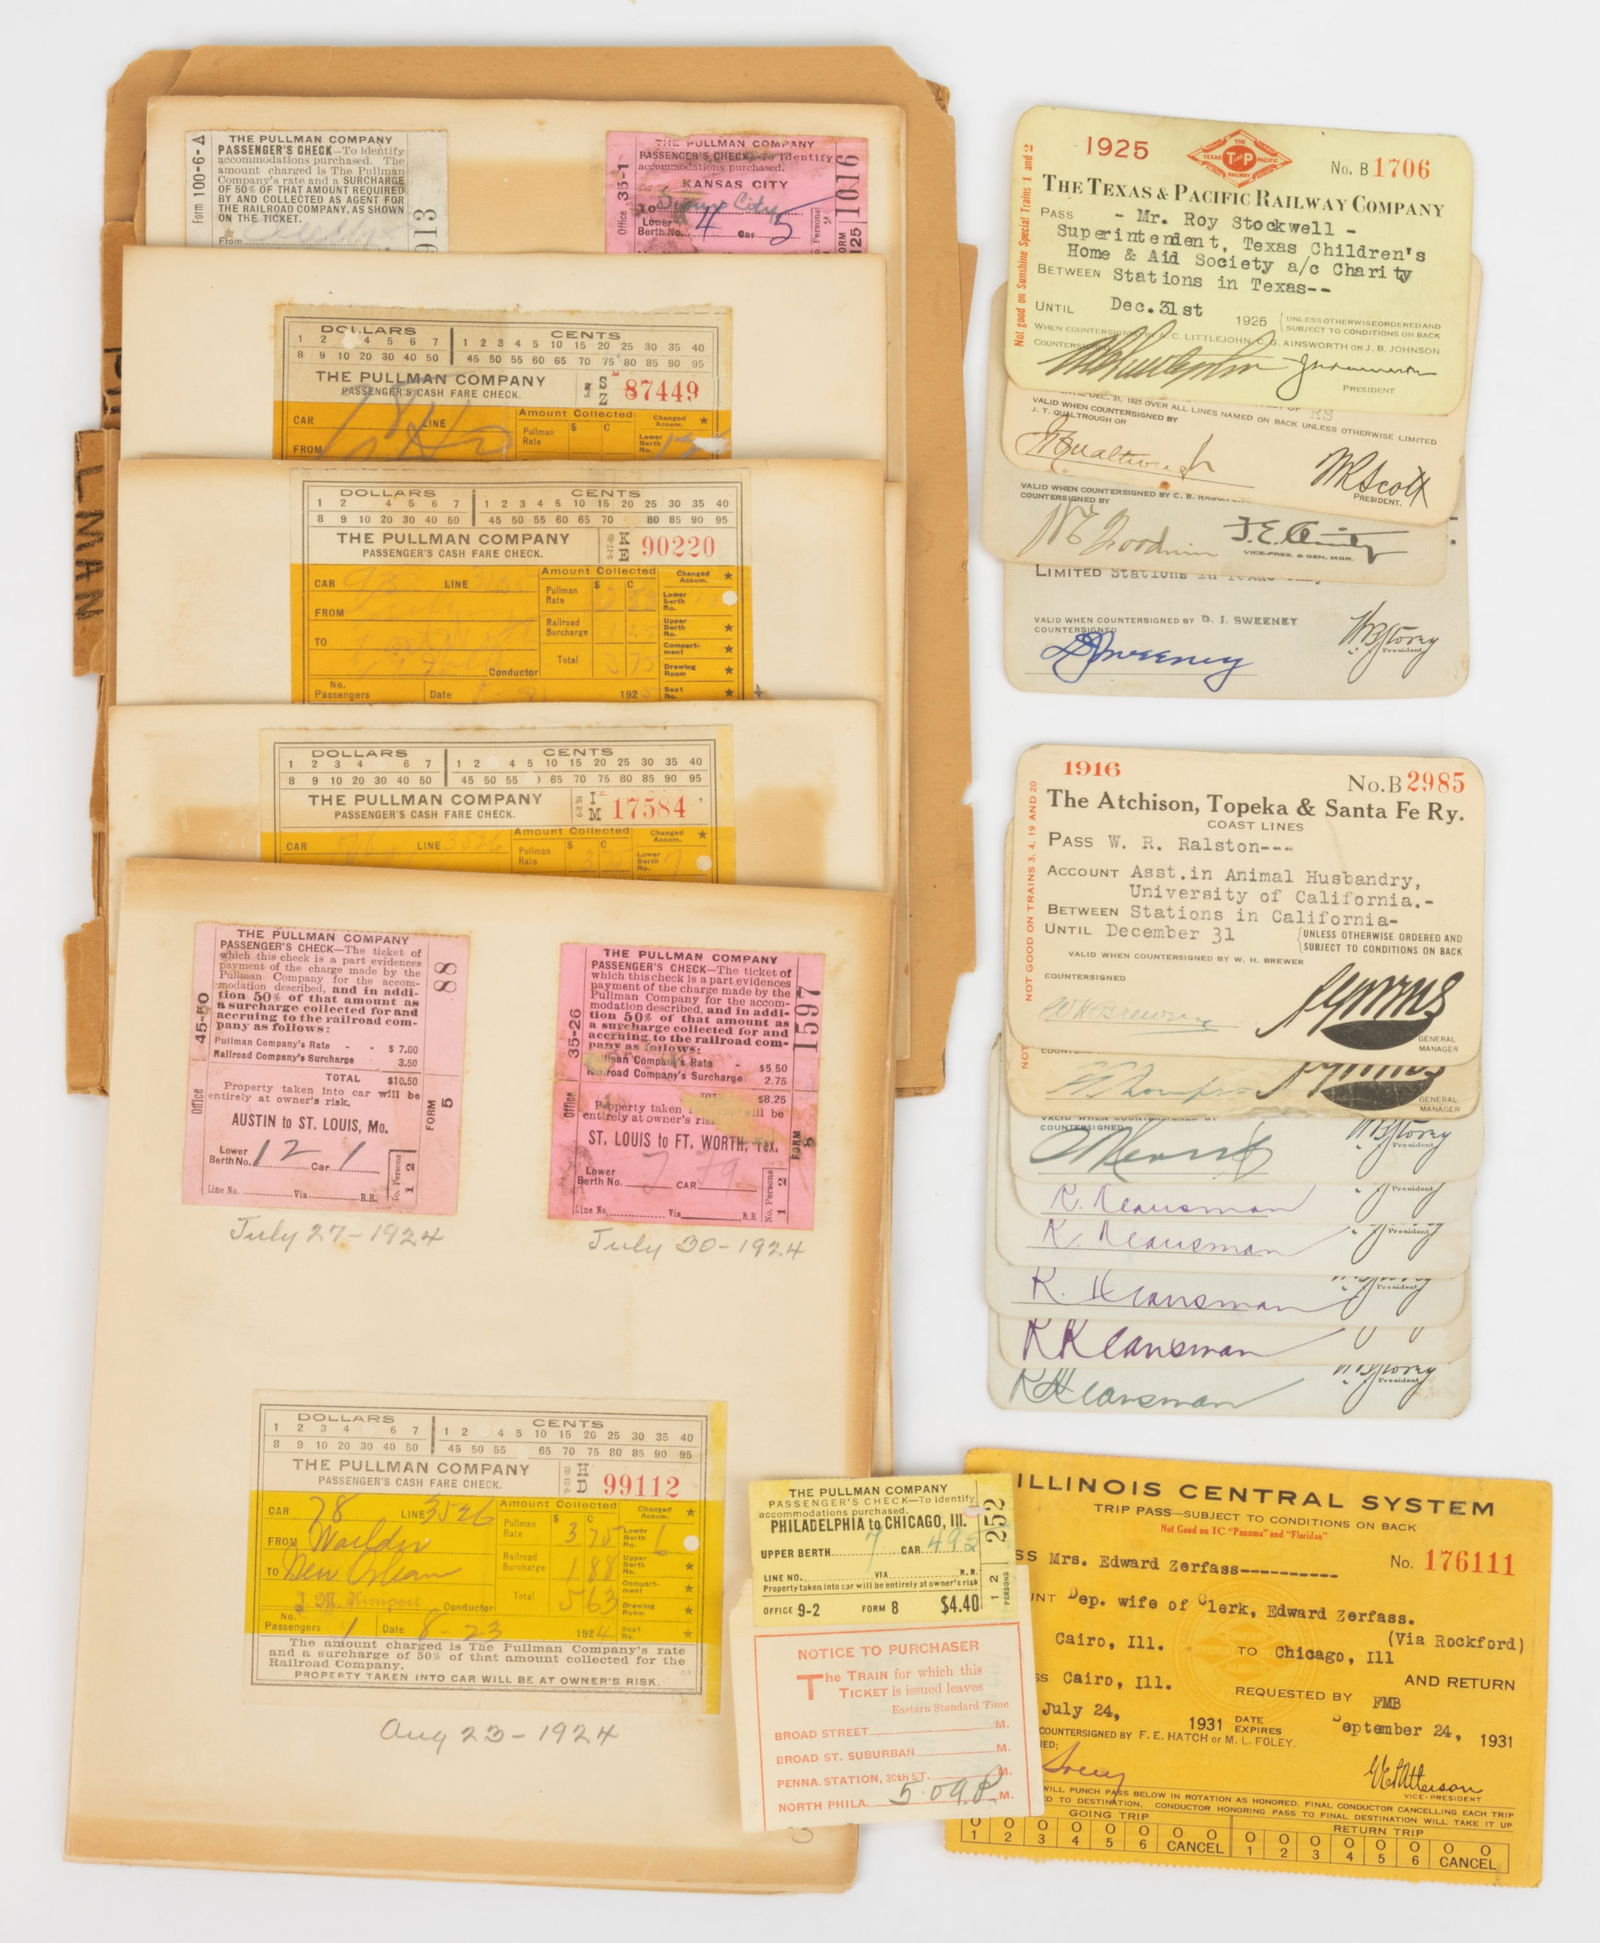 THE PULLMAN COMPANY
PASSENGER'S CHECK—To identify
accommodations purchased. The
amount charged is The Pullman
Company's rate and a SURCHARGE
OF 50% OF THAT AMOUNT REQUIRED
BY AND COLLECTED AS AGENT FOR
THE RAILROAD COMPANY, AS SHOWN
ON THE TICKET.
From
Form 100-6-A
913
THE PULLMAN COMPANY
PASSENGER'S CHECK—To identify
accommodations purchased.
KANSAS CITY
To Sioux City
Lower
Berth No. 4 Car 5
Office 35-1
1016
DOLLARS CENTS
1 2 4 5 6 7 1 2 3 4 5 10 15 20 25 30 35 40
8 9 10 20 30 40 50 45 50 55 60 65 70 75 80 85 90 95
THE PULLMAN COMPANY
PASSENGER'S CASH FARE CHECK.
S
Z 87449
CAR LINE
FROM
Amount Collected
Pullman
Rate
$ C
Changed
Accom.
Lower
Berth
No.
LMAN
DOLLARS CENTS
1 2 4 5 6 7 1 2 3 4 5 10 15 20 25 30 35 40
8 9 10 20 30 40 50 45 50 55 60 65 70 80 85 90 95
THE PULLMAN COMPANY
PASSENGER'S CASH FARE CHECK.
K
E 90220
CAR LINE
FROM
TO
Conductor
No.
Passengers Date 192
Amount Collected
Pullman
Rate
Railroad
Surcharge
Total
$ C
Changed
Accom.
Lower
Berth
No.
Upper
Berth
No.
Compart-
ment
Drawing
Room
Seat
No.
DOLLARS CENTS
1 2 3 4 6 7 1 2 4 5 10 15 20 25 30 35 40
8 9 10 20 30 40 50 45 50 55 65 70 75 80 85 90 95
THE PULLMAN COMPANY
PASSENGER'S CASH FARE CHECK.
I
M 17584
CAR LINE 3526
Amount Collected
Pullman
Rate
$ C
Changed
Accom.
Lower
Berth
No. 7
THE PULLMAN COMPANY
PASSENGER'S CHECK—The ticket of
which this check is a part evidences
payment of the charge made by the
Pullman Company for the accom-
modation described, and in addi-
tion 50% of that amount as
a surcharge collected for and
accruing to the railroad com-
pany as follows:
Pullman Company's Rate - - $ 7.00
Railroad Company's Surcharge - 3.50
TOTAL $10.50
Property taken into car will be
entirely at owner's risk.
AUSTIN to ST. LOUIS, Mo.
Lower
Berth No. 12 Car 1
Line No. Via R.R.
Office 45-50
88
FORM 5
No. Persons
1 2
July 27-1924
THE PULLMAN COMPANY
PASSENGER'S CHECK—The ticket of
which this check is a part evidences
payment of the charge made by the
Pullman Company for the accom-
modation described, and in addi-
tion 50% of that amount as
a surcharge collected for and
accruing to the railroad com-
pany as follows:
Pullman Company's Rate - $5.50
Railroad Company's Surcharge 2.75
$8.25
Property taken will be
entirely at owner's
ST. LOUIS to FT. WORTH, Tex.
Lower
Berth No. 7 CAR 79
Line No. Via R.R
Office 35-26
1597
FORM 8
No. Persons
1 2
July 30-1924
DOLLARS CENTS
1 2 3 4 6 7 1 2 4 5 10 15 20 25 30 35 40
8 9 10 20 30 40 50 45 50 55 65 70 75 80 85 90 95
THE PULLMAN COMPANY
PASSENGER'S CASH FARE CHECK.
H
D 99112
CAR 78 LINE 3526
FROM Waelder
TO New Orlean
Conductor
No.
Passengers 1 Date 8-23 1924
Amount Collected
$ C
Pullman
Rate 3 75
Railroad
Surcharge 1 88
Total 5 63
Changed
Accom.
Lower
Berth
No. 6
Upper
Berth
No.
Compart-
ment
Drawing
Room
Seat
No.
The amount charged is The Pullman Company's rate
and a surcharge of 50% of that amount collected for the
Railroad Company.
PROPERTY TAKEN INTO CAR WILL BE AT OWNER'S RISK.
Aug 23-1924
THE PULLMAN COMPANY
PASSENGER'S CHECK—To identify
accommodations purchased.
PHILADELPHIA to CHICAGO, Ill.
UPPER BERTH 7 CAR 495
LINE NO. VIA R.R.
Property taken into car will be entirely at owner's risk
OFFICE 9-2 FORM 8 $4.40
252
1 2
PERSONS
NOTICE TO PURCHASER
The TRAIN for which this
TICKET is issued leaves
Eastern Standard Time
BROAD STREET M.
BROAD ST. SUBURBAN M.
PENNA. STATION, 30th ST. M.
NORTH PHILA. 5:09 P. M.
1925
THE TEXAS AND PACIFIC RAILWAY
T AND P
No. B 1706
THE TEXAS & PACIFIC RAILWAY COMPANY
PASS - Mr. Roy Stockwell -
Superintendent, Texas Children's
Home & Aid Society a/c Charity
BETWEEN Stations in Texas--
UNTIL Dec. 31st 1925 UNLESS OTHERWISE ORDERED AND
SUBJECT TO CONDITIONS ON BACK
WHEN COUNTERSIGNED BY A. C. LITTLEJOHN, C. G. AINSWORTH OR J. B. JOHNSON
COUNTERSIGNED
PRESIDENT
Not good on Sunshine Special Trains 1 and 2
DEC. 31, 1925 OVER ALL LINES NAMED ON BACK UNLESS OTHERWISE LIMITED
VALID WHEN COUNTERSIGNED BY
J. T. QUALTROUGH OR
J T Qualtrough
W R Scott
PRESIDENT.
VALID WHEN COUNTERSIGNED BY C. B.
COUNTERSIGNED BY
Goodwin
VICE-PRES. & GEN. MGR.
LIMITED Stations in Texas only
VALID WHEN COUNTERSIGNED BY D. J. SWEENEY
COUNTERSIGNED
D J Sweeney
W B Storey
President
1916
No. B 2985
The Atchison, Topeka & Santa Fe Ry.
COAST LINES
PASS W. R. Ralston---
ACCOUNT Asst. in Animal Husbandry,
University of California.-
BETWEEN Stations in California-
UNTIL December 31 UNLESS OTHERWISE ORDERED AND
SUBJECT TO CONDITIONS ON BACK
VALID WHEN COUNTERSIGNED BY W. H. BREWER
COUNTERSIGNED
W H Brewer
GENERAL
MANAGER
NOT GOOD ON TRAINS 3, 4, 19 AND 20
NOT
GENERAL
MANAGER
VALID WHEN COUNTERSIGNED BY
COUNTERSIGNED
W B Storey
President
K. Klausman
President
K. Klausman
President
K. Klausman
President
K Klausman
K Klausman
W B Storey
President
ILLINOIS CENTRAL SYSTEM
TRIP PASS—SUBJECT TO CONDITIONS ON BACK
Not Good on IC "Panama" and "Floridan"
SS Mrs. Edward Zerfass---------- No. 176111
UNT Dep. wife of Clerk, Edward Zerfass.
(Via Rockford)
Cairo, Ill. TO Chicago, Ill
SS Cairo, Ill. AND RETURN
REQUESTED BY FMB
July 24, 1931 DATE
EXPIRES September 24, 1931
COUNTERSIGNED BY F. E. HATCH or M. L. FOLEY.
NED:
VICE-PRESIDENT
WILL PUNCH PASS BELOW IN ROTATION AS HONORED. FINAL CONDUCTOR CANCELLING EACH TRIP
ED TO DESTINATION. CONDUCTOR HONORING PASS TO FINAL DESTINATION WILL TAKE IT UP
GOING TRIP RETURN TRIP
O O O O O O O O O O O O O O O O
1 2 3 4 5 6 CANCEL 1 2 3 4 5 6 CANCEL